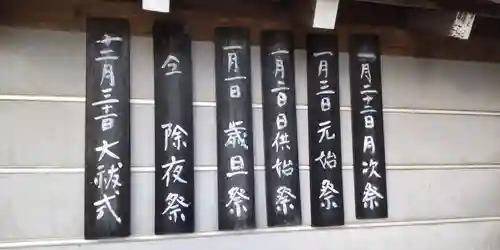 十二月三十一日大祓式
仝 除夜祭
一月一日歳旦祭
一月二日日供始祭
一月三日元始祭
一月二十二日月次祭